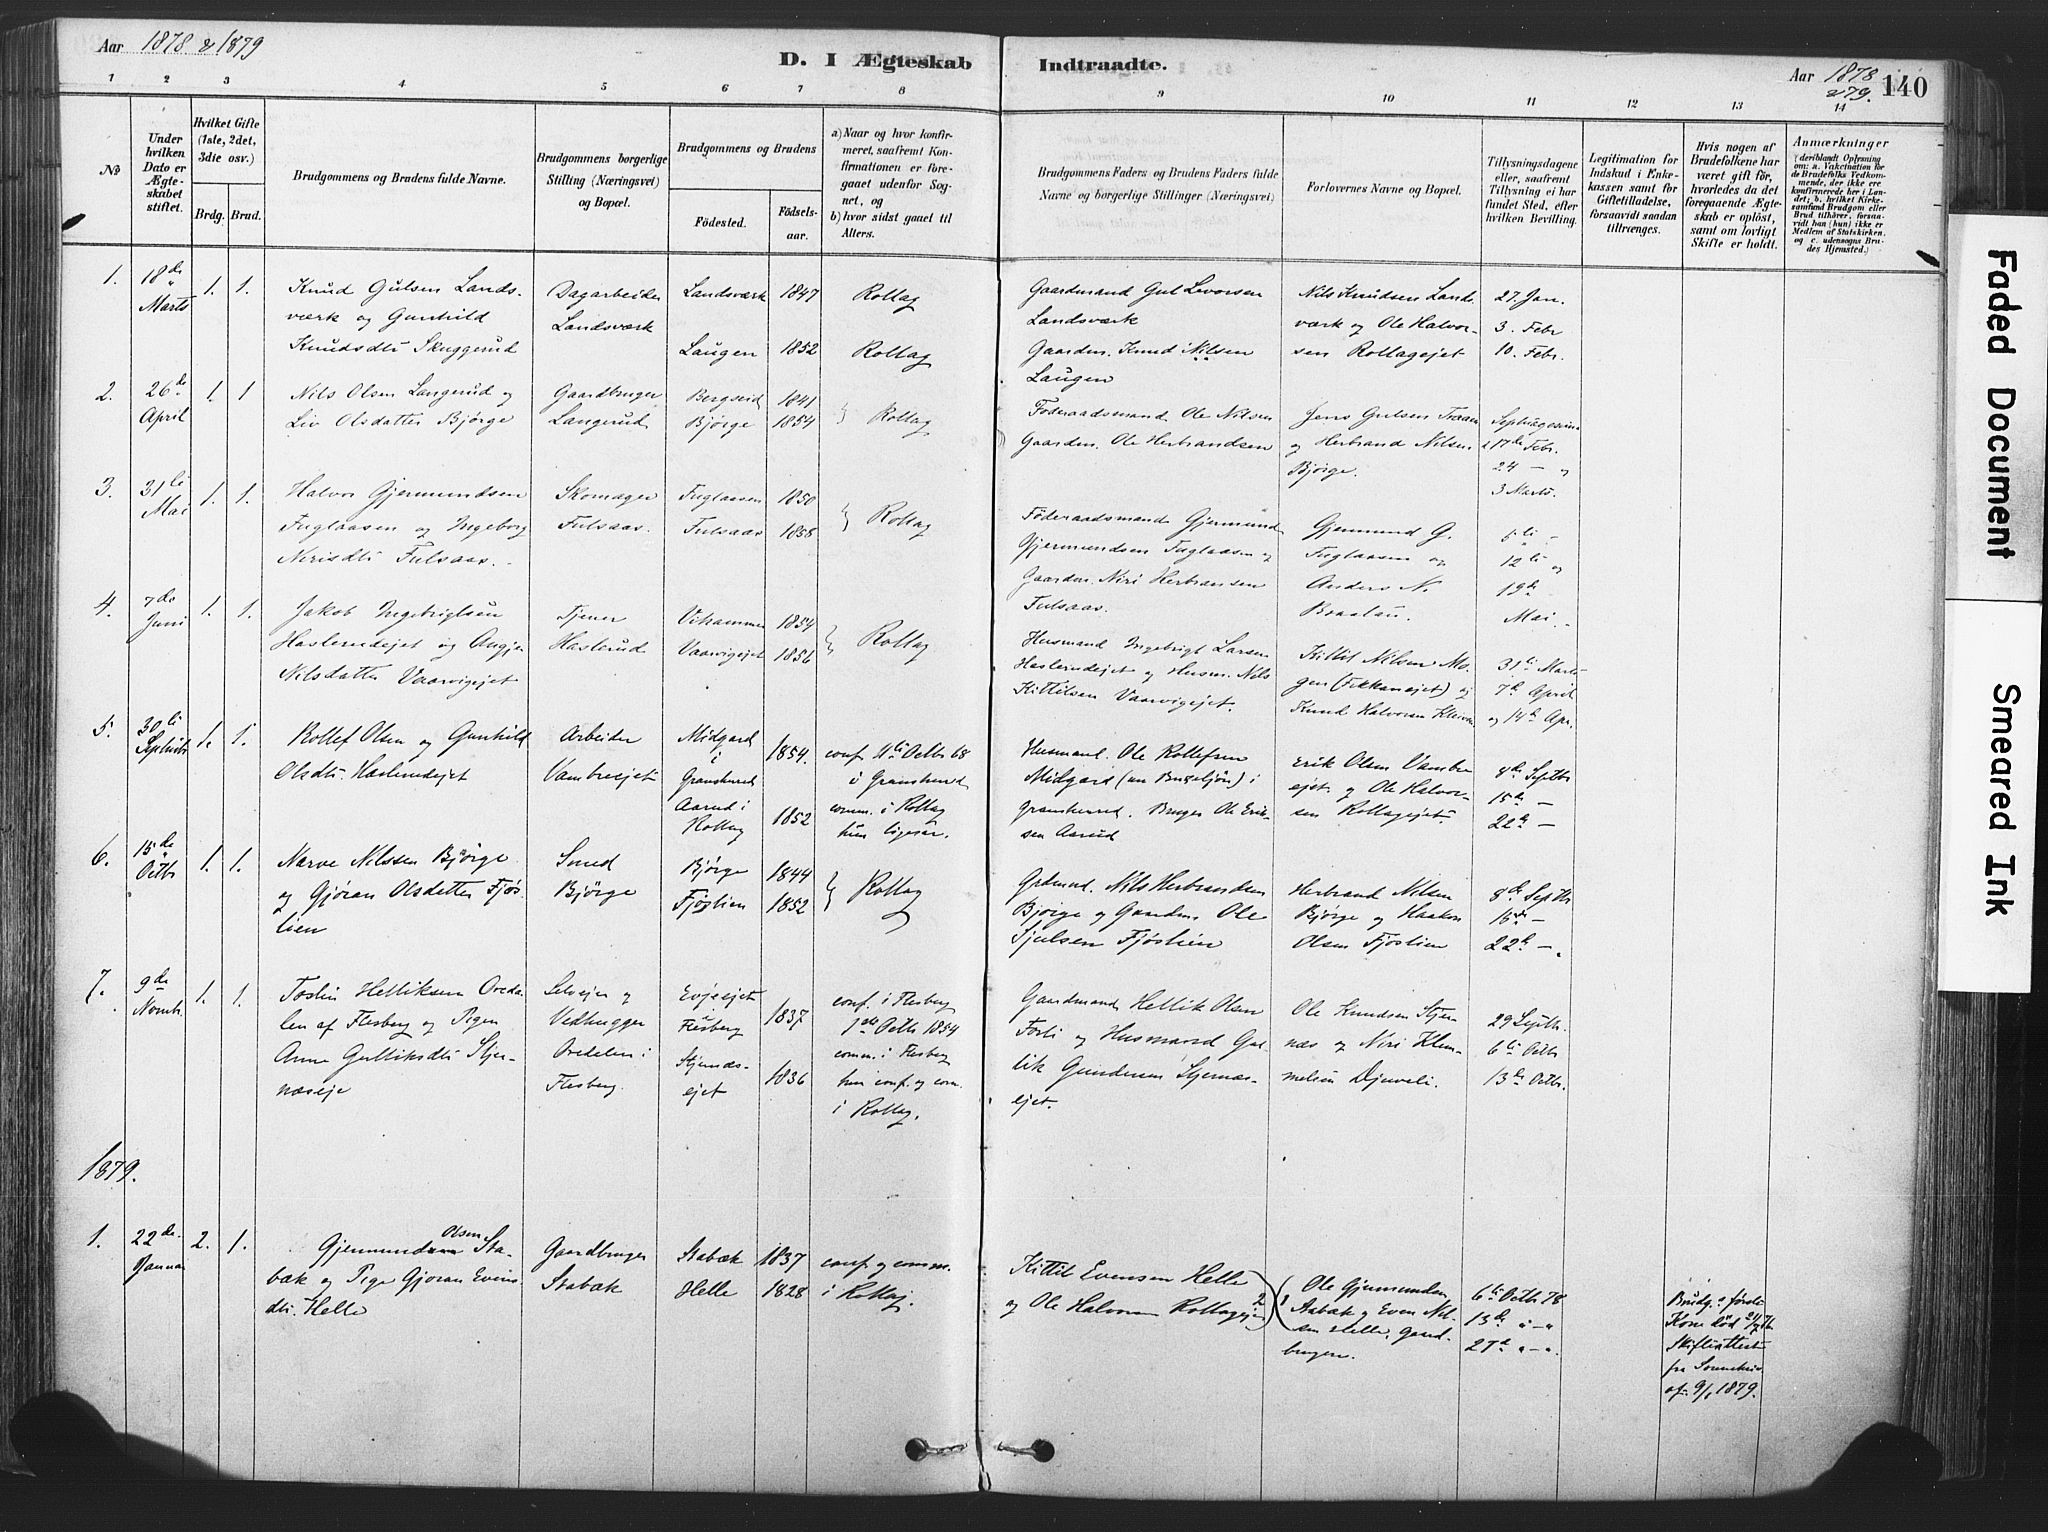 Aar 1878 & 1879
D. I Ægteskab Indtraadte.
Aar 1878 & 79.
140
1 2 3 4 5 6 7 8 9 10 11 12 13 14
No
Under hvilken Dato er Ægteskabet stiftet.
Hvilket Gifte (1ste, 2det, 3die osv.)
Brdg. Brud.
Brudgommens og Brudens fulde Navne.
Brudgommens borgerlige Stilling (Næringsvei) og Bopæl.
Brudgommens og Brudens
Fødested.
Fødselsaar.
a) Naar og hvor konfirmeret, saafremt Konfirmationen er foregaaet udenfor Sognet, og
b) hvor sidst gaaet til Alters.
Brudgommens Faders og Brudens Faders fulde Navne og borgerlige Stillinger (Næringsvei)
Forlovernes Navne og Bopæl.
Tillysningsdagene eller, saafremt Tillysning ei har fundet Sted, efter hvilken Bevilling.
Legitimation for Indskud i Enkekassen samt for Giftetilladelse, forsaavidt saadan tiltrænges.
Hvis nogen af Brudefolkene har været gift før, hvorledes da det foregaaende Ægteskab er opløst, samt om lovligt Skifte er holdt.
Anmærkninger
(deriblandt Oplysning om: a. Vakcination for de Brudefolks Vedkommende, der ikke ere konfirmerede her i Landet; b. hvilket Kirkesamfund Brudgom eller Brud tilhører, forsaavidt han (hun) ikke er Medlem af Statskirken. og c. udensogns Brudes Hjemsted.)
1. 18de Marts 1. 1.
Knud Gulsen Landsværk og Gunhild Knudsdtr Skuggerud
Dagarbeider Landsværk
Landsværk 1847 Rollag
Laugen 1852 Rollag
Gaardmand Gul Levorsen Landsværk
Gaardm. Knud Nilsen Laugen
Nils Knudsen Landsværk og Ole Halvorsen Rollagejet
27. Jan. 3. Febr 10. Febr.
2. 26de April 1. 1
Nils Olsen Langerud og Liv Olsdatter Bjørge
Gaardbruger Langerud
Bergseid 1841
Bjørge 1854
Rollag
Føderaadsmand Ole Nilsen
Gaardm. Ole Herbrandsen
Jens Gulsen Traaen og Herbrand Nilsen Bjørge.
17de Febr. 24 – og 3 Marts.
3. 31te Mai 1. 1.
Halvor Gjermundsen Fuglaasen og Ingeborg Nirisdtr Fulsaas.
Skomager Fulsaas.
Fuglaasen 1850
Fulsaas 1858
Rollag
Føderaadsmand Gjermund Gjermundsen Fuglaasen og Gaardm. Niri Herbransen Fulsaas.
Gjermund G. Fuglaasen og Anders N. Braatau.
5te – 12te og 19de Mai.
4. 7de Juni 1. 1.
Jakob Ingebrigtsen Haslerudejet og Nilsdatter Vaarvigejet
Tjener Haslerud
Vihammer 1854
Vaarvigejet 1856
Rollag
Husmand Ingebrigt Larsen Haslerudejet og Husm. Nils Kittilsen Vaarvigejet.
Kittil Nilsen Mogen og Knud Halvorsen
31te Marts 7de April og 14de Apr.
5. 30te Septbr 1. 1.
Rollef Olsen og Gunhild Olsdtr. Haslerudejet
Arbeider Vambrsejet
Midgard i Granshered 1854.
Aarud i Rollag 1852
conf. 11te Octbr 68 i Gransherred comm. i Rollag hun ligesaa.
Husmand. Ole Rollefsen Midgard i Gransherred. Bruger Ole Eriksen Aarud
Erik Olsen Vambrsejet. og Ole Halvorsen Rollagejet
8de Septbr 15de – 22de –
6. 15de Octbr 1. 1.
Narve Nilssen Bjørge og Gjøran Olsdatter Fjøslien
Smed Bjørge
Bjørge 1844
Fjøslien 1852
Rollag
Grdmnd. Nils Herbrandsen Bjørge og Gaardm. Ole Sjulsen Fjøslien
Herbrand Nilsen Bjørge og Haakon Olsen Fjøslien
8de Septbr 15de – 22de –.
7. 9de Novmbr. 1. 1.
Tostin Helliksen Oredalen af Flesberg og Pigen Anne Gulliksdtr Stjernæseje
Selvejer og Vedhugger Oredalen i Flesberg.
Evjesejet Flesberg 1837
Stjernæsejet 1836
conf. i Flesberg 1ste Octbr 1854 comm. i Flesberg hun conf. og com. i Rollag.
Gaardmand Hellik Olsen Fosli og Husmand Gullik Gundersen Stjernæsejet.
Ole Knudsen Stjernæs og Niri Klemmetsen Djuveli.
29 Septbr. 6te Octbr 13de Octbr.
1879.
1. 22de Januar 2. 1.
Gjermund Olsen Stabæk og Pige Gjøran Evensdtr. Helle
Gaardbruger Stabæk
Stabæk 1837
Helle 1828
conf. og comm. i Rollag.
Kittil Evensen Helle og Ole Halvorsen Rollagejet 2
1 Ole Gjermundsen Stabæk og Even Nilsen Helle, Gaardbrugere.
6te Octbr 78 13de " – " 27de " – ".
Brudg.s første Kone død Skifteattest fra Sorenskriv. af 9/1 1879.
Faded Document
Smeared Ink